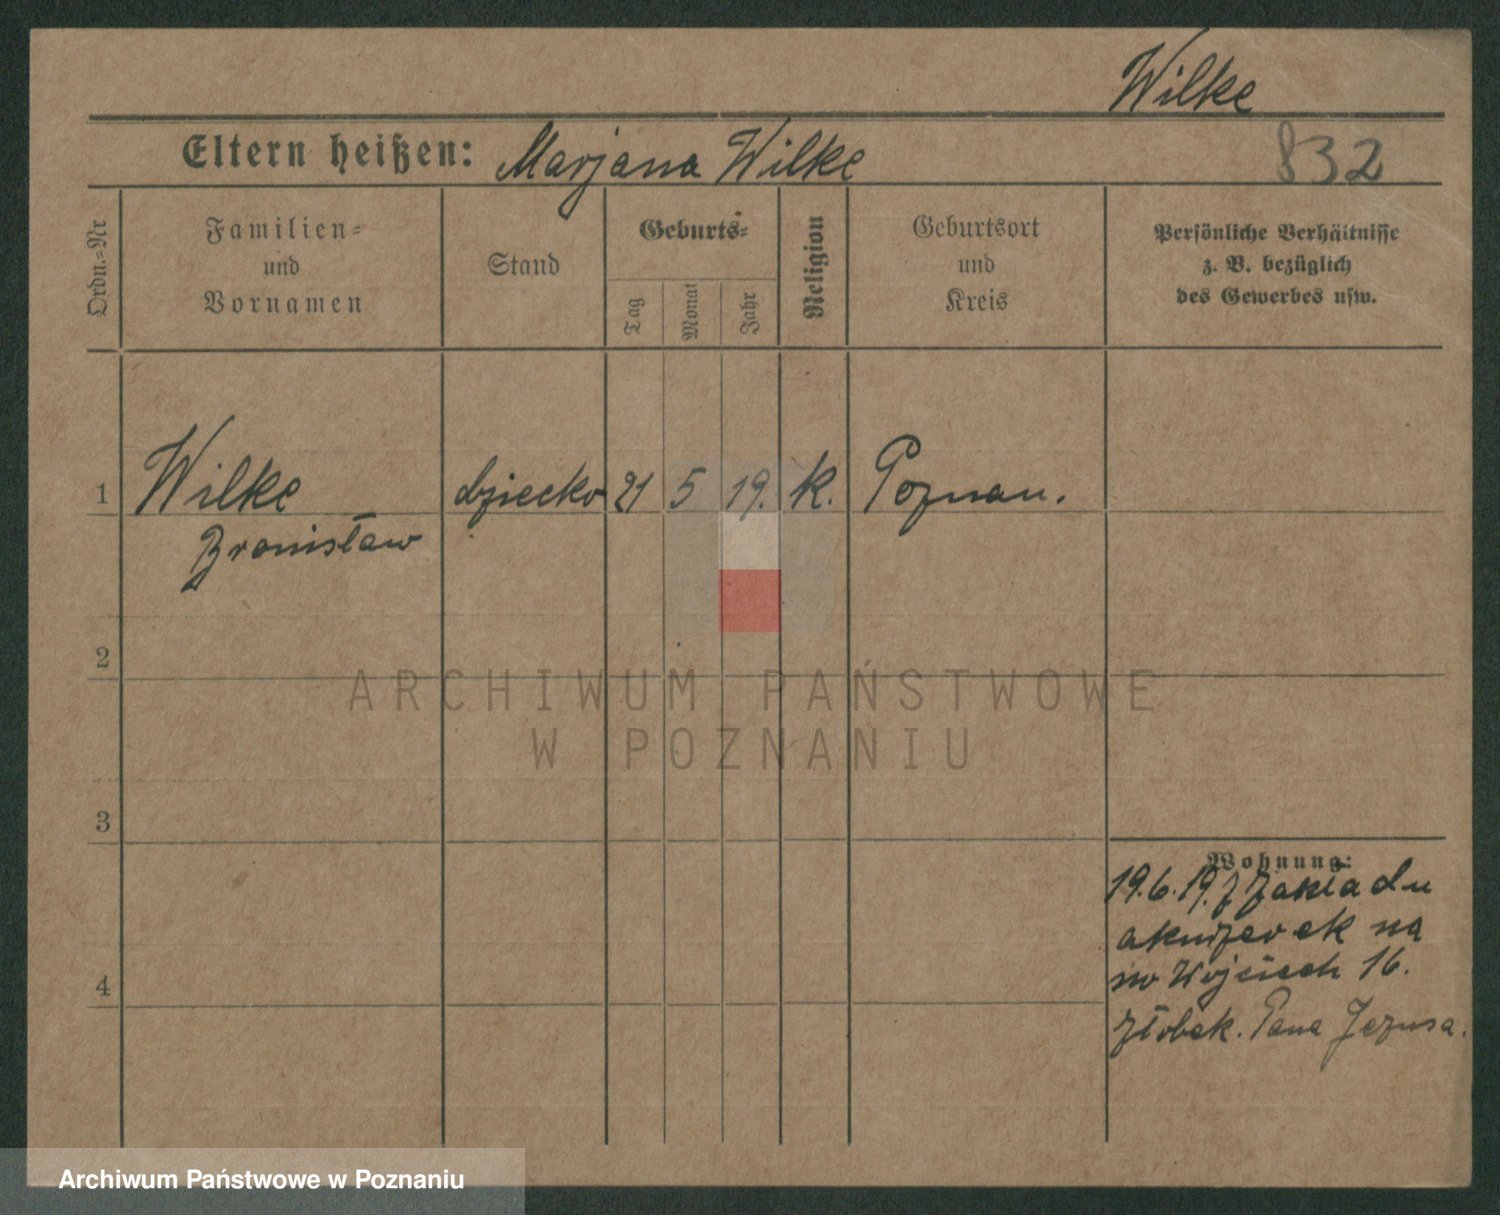 Wilke
Eltern heißen: Marjana Wilke
832
Ordn.=Nr
Familien=
und
Vornamen
Stand
Geburts=
Tag
Monat
Jahr
Religion
Geburtsort
und
Kreis
Persönliche Verhältnisse
z. B. bezüglich
des Gewerbes usw.
1 Wilke dziecko 21 5 19. k. Poznan.
Bronisław
2
ARCHIWUM PAŃSTWOWE
W POZNANIU
3
Wohnung:
19.6.19. z Zakładu
akuszerek na
św Wojciech 16.
4
żłobek. Pana Jezusa.
Archiwum Państwowe w Poznaniu